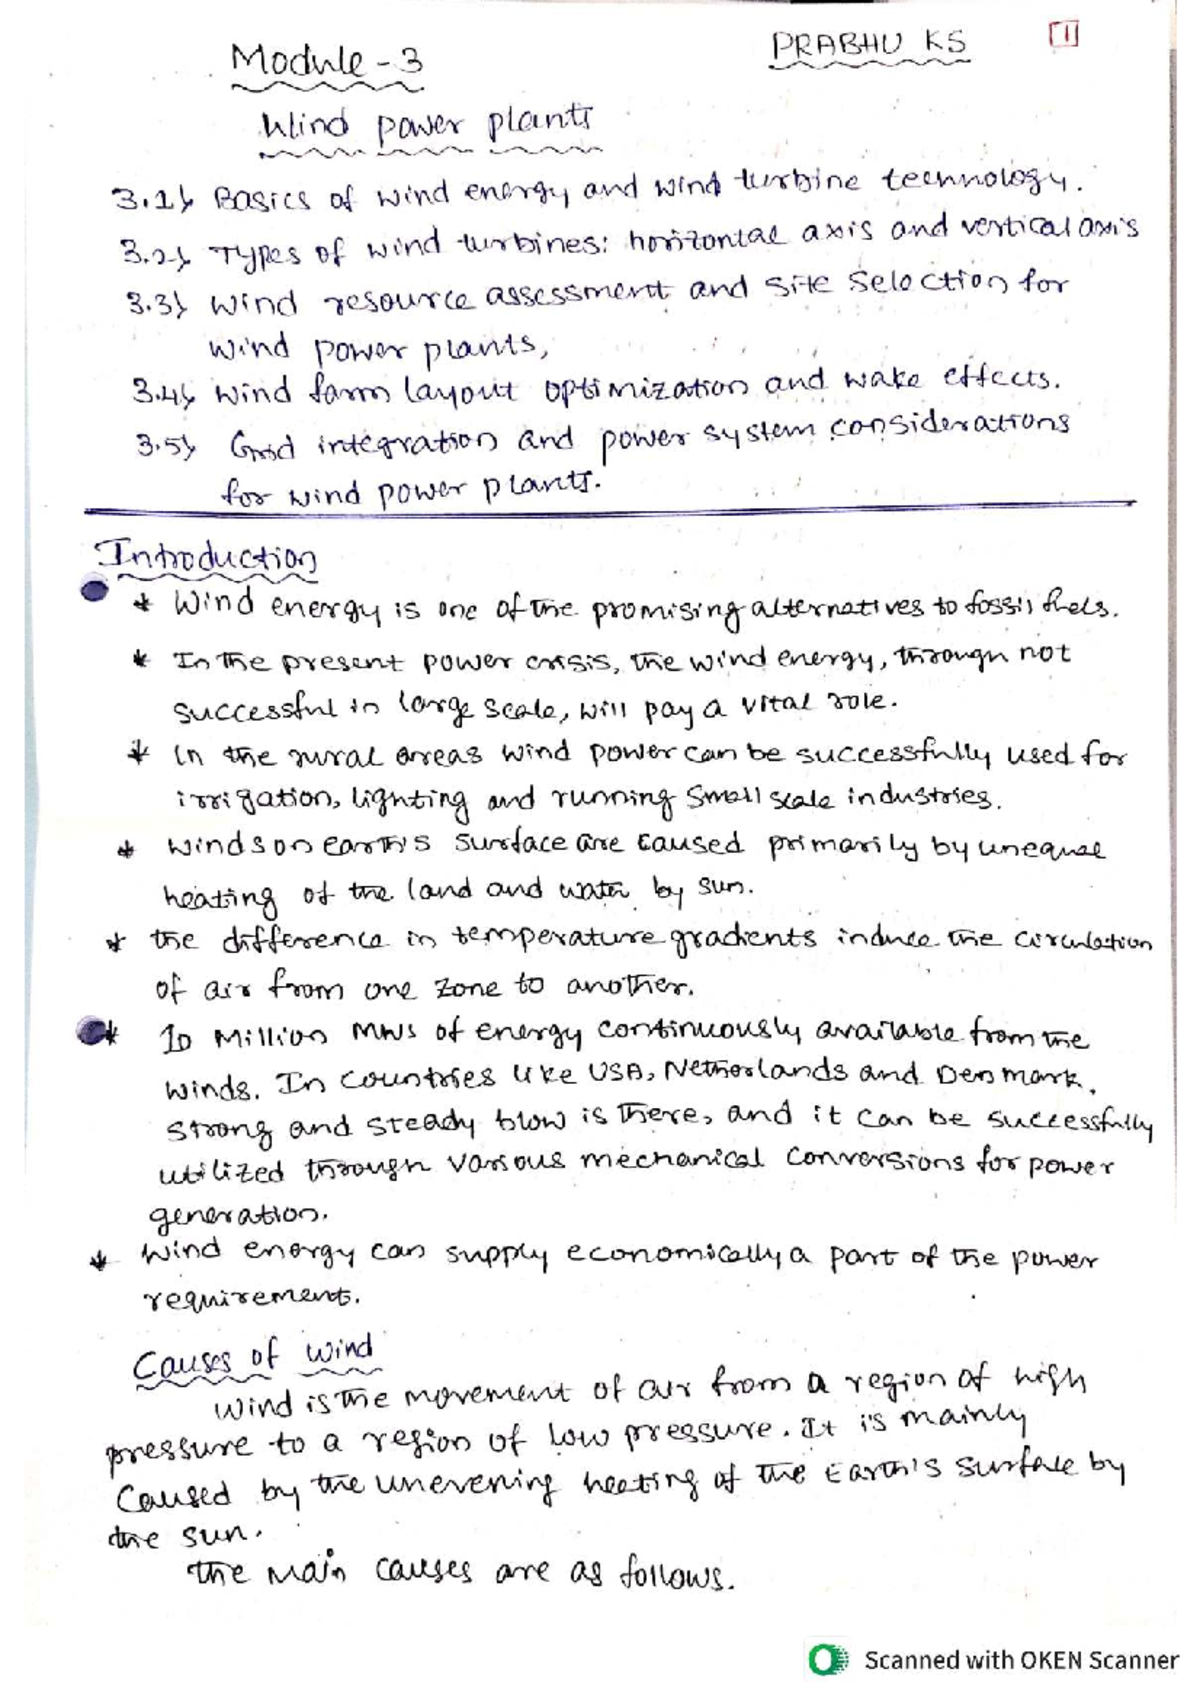 Module - 3
PRABHU KS
1
Wind power plants
3.1) Basics of wind energy and wind turbine technology.
3.2) Types of wind turbines: horizontal axis and vertical axis
3.3) Wind resource assessment and site selection for
wind power plants,
3.4) Wind farm layout optimization and wake effects.
3.5) Grid integration and power system considerations
for wind power plants.
Introduction
* Wind energy is one of the promising alternatives to fossil fuels.
* In the present power crisis, the wind energy, through not
successful in large scale, will pay a vital role.
* In the rural areas wind power can be successfully used for
irrigation, lighting and running small scale industries.
* Winds on earth's surface are caused primarily by unequal
heating of the land and water by sun.
* the difference in temperature gradients induce the circulation
of air from one zone to another.
* 10 Million MWs of energy continuously available from the
winds. In countries like USA, Netherlands and Denmark,
strong and steady blow is there, and it can be successfully
utilized through various mechanical conversions for power
generation.
* Wind energy can supply economically a part of the power
requirement.
Causes of wind
Wind is the movement of air from a region of high
pressure to a region of low pressure. It is mainly
caused by the unevening heating of the Earth's surface by
the sun.
the main causes are as follows.
Scanned with OKEN Scanner